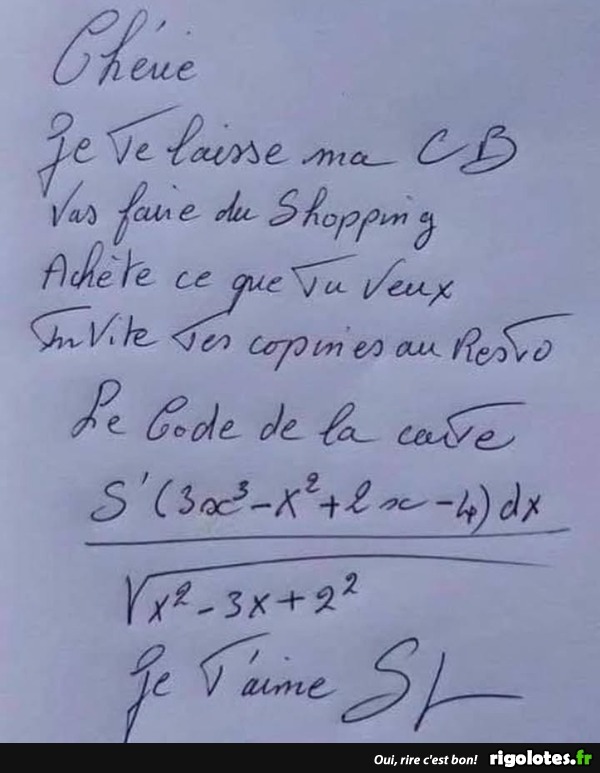 Chérie
Je Te laisse ma CB
Vas faire du Shopping
Achète ce que Tu Veux
InVite Tes copines au Resto
Le Code de la carte
S'(3x³-x²+2x-4)dx
√x²-3x+2²
Je T'aime
Oui, rire c'est bon! rigolotes.fr